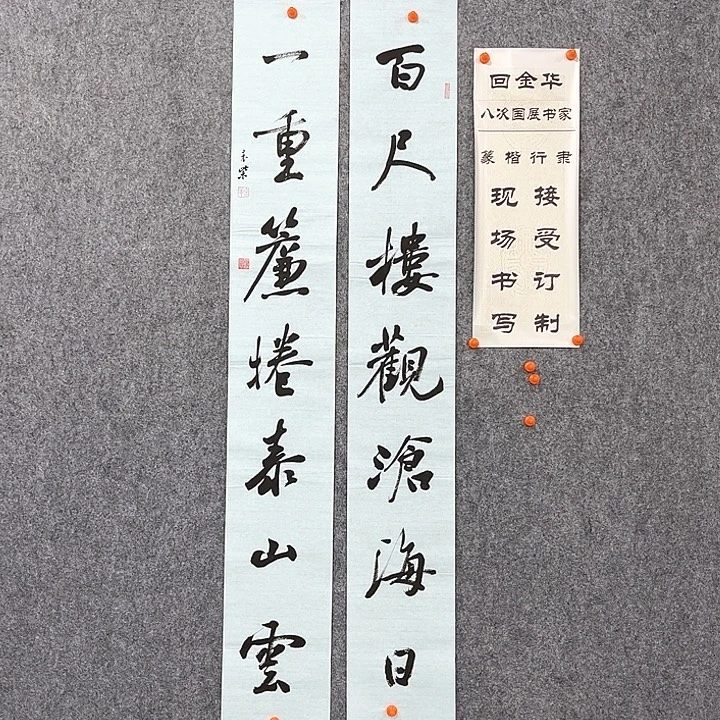 百尺樓觀滄海日
一重簾捲泰山雲
回金华
八次国展书家
篆楷行隶
接受订制
现场书写